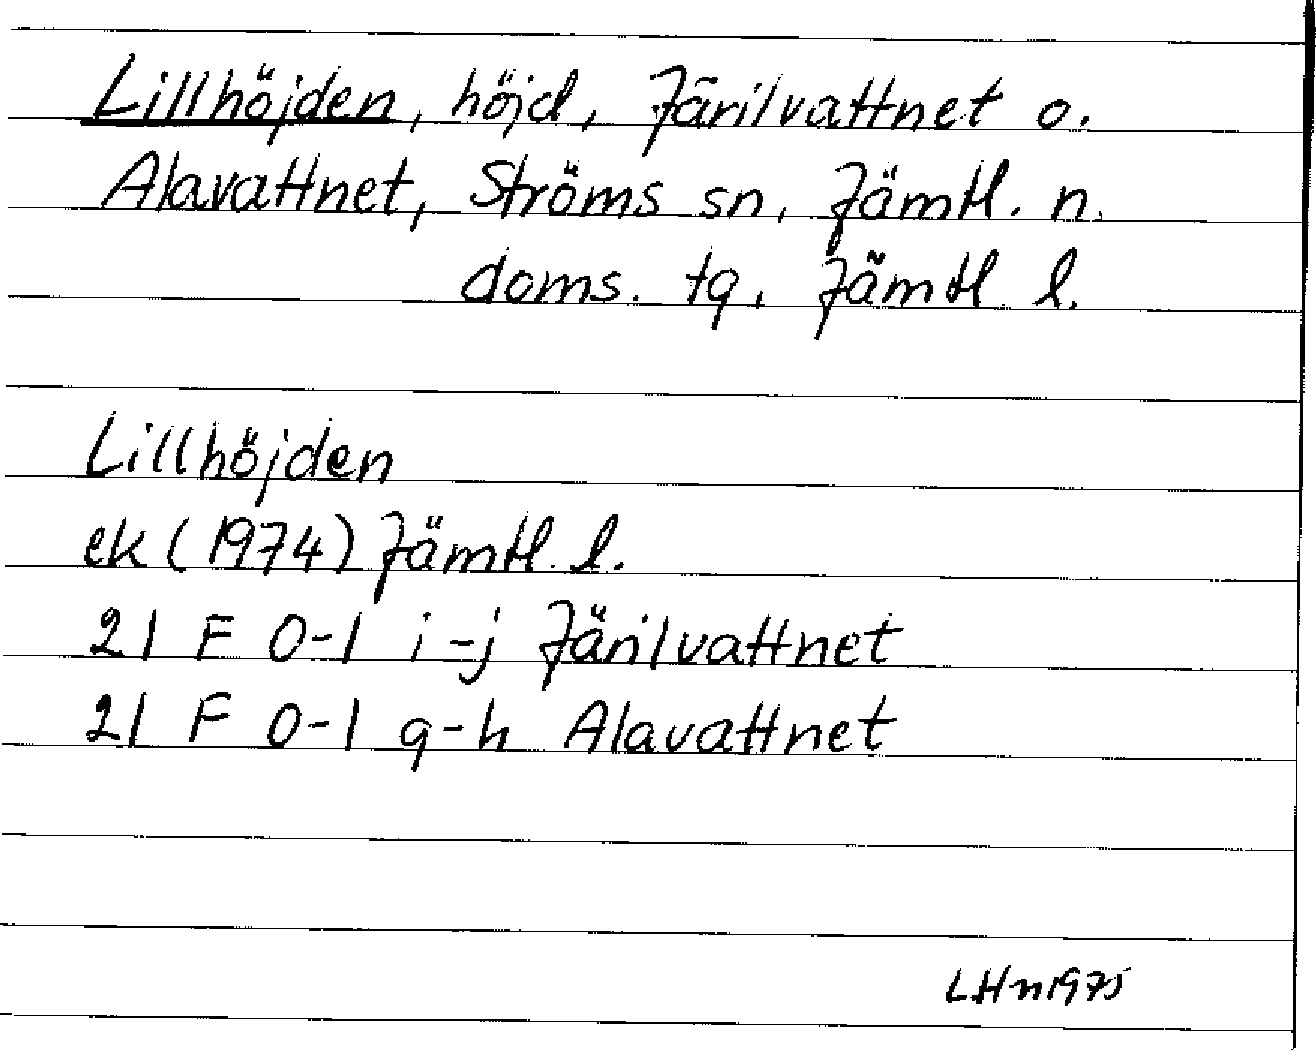 Lillhöjden, höjd, Järilvattnet o.
Alavattnet, Ströms sn, Jämtl. n.
doms. tg, Jämtl l.
Lillhöjden
ek (1974) Jämtl. l.
21 F 0-1 i-j Järilvattnet
21 F 0-1 g-h Alavattnet
LHn 1975